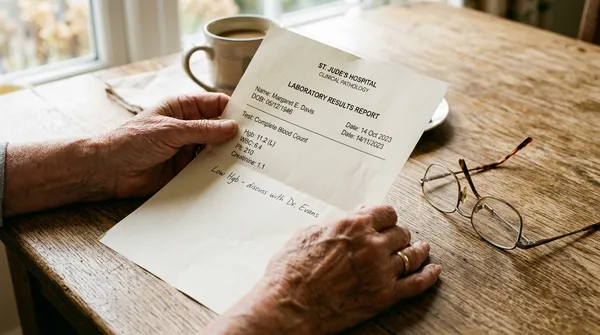 ST. JUDE'S HOSPITAL
CLINICAL PATHOLOGY
LABORATORY RESULTS REPORT
Name: Margaret E. Davis
DOB: 05/12/1946
Date: 14 Oct 2023
Date: 14/11/2023
Test: Complete Blood Count
Hgb: 11.2 (L)
WBC: 6.4
Plt: 210
Creatinine: 1.1
Low Hgb - discuss with Dr. Evans